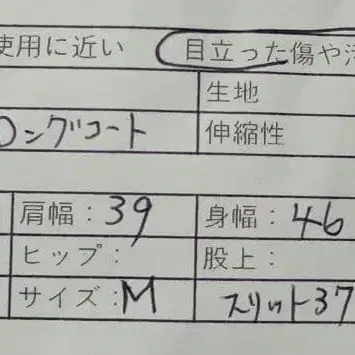 使用に近い 目立った傷や汚
生地
ロングコート 伸縮性
肩幅：39 身幅：46
ヒップ： 股上：
サイズ：M スリット37